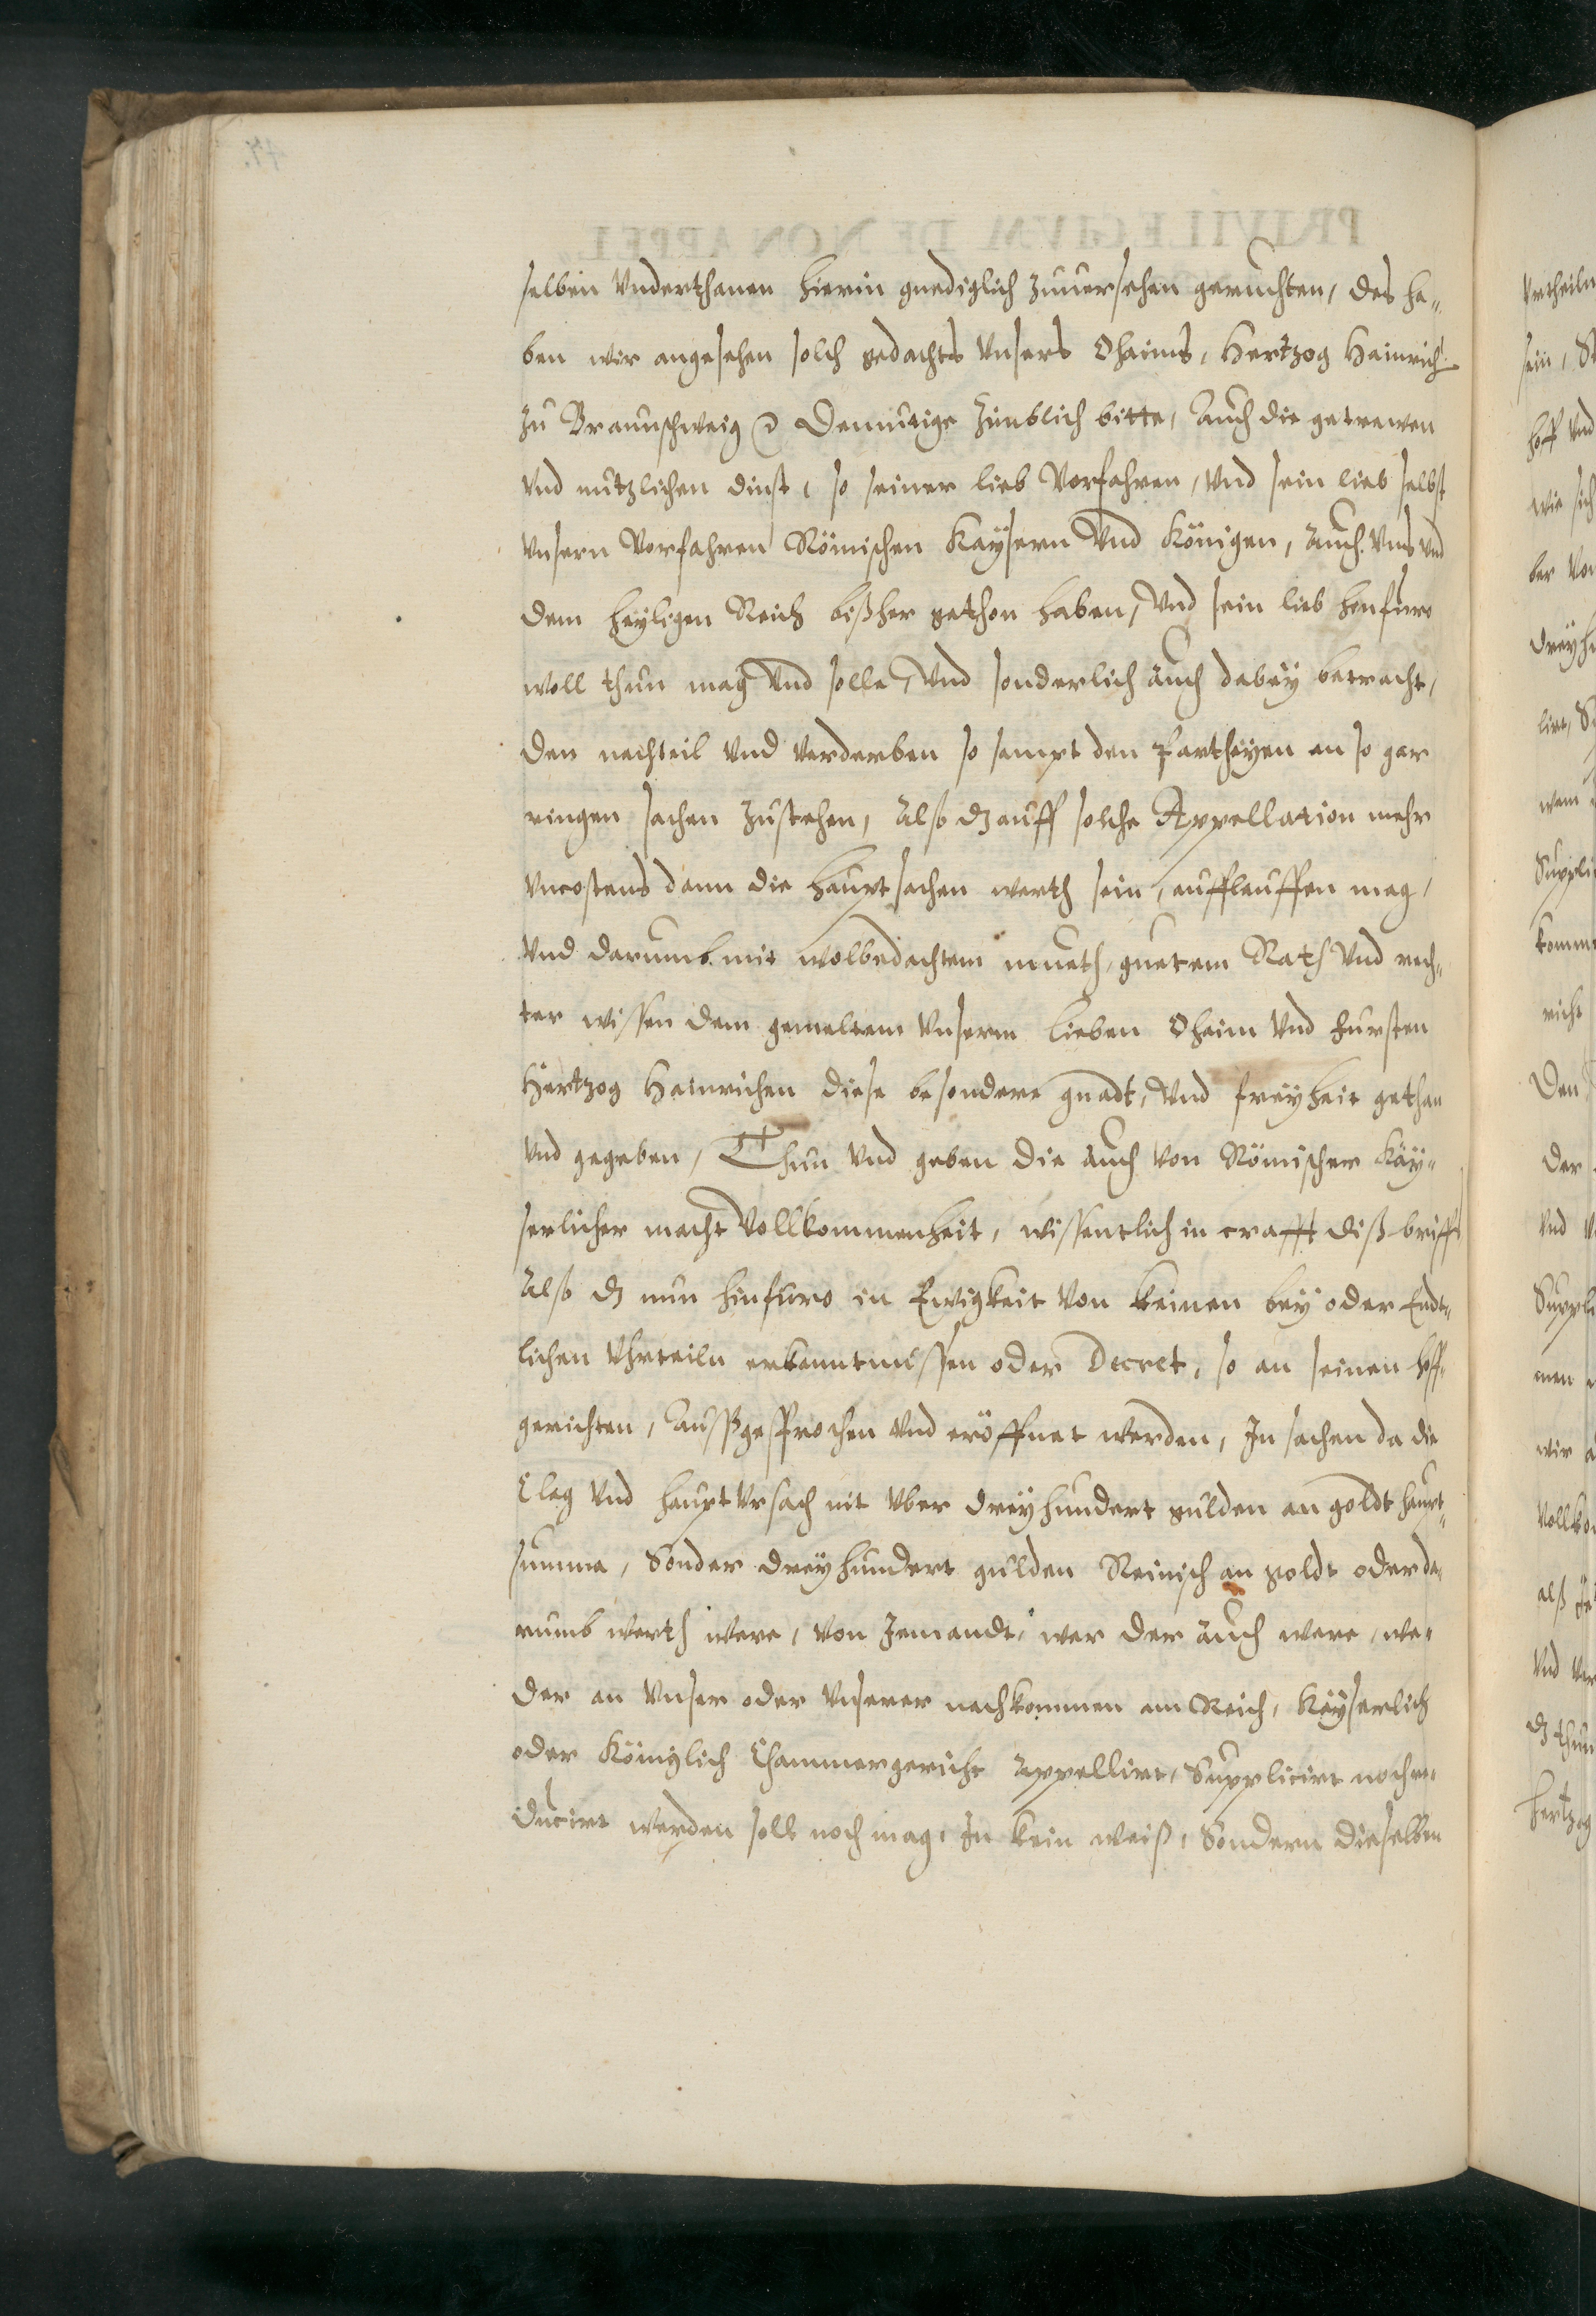 selben Vnderthanen hierin gnediglich zuuersehen geruchten, das ha¬
ben wir angesehen solch gedachts Vnsers Ohaims, Hertzog Hainrich
zu Braunschweig Demutige Zimblich bitte, Auch die getrewen
Vnd nutzlichen dinst, so seiner lieb Vorfahren, Vnd sein lieb selbst
Vnsern Vorfahren Römischen Kaÿsern Vnd Königen, Auch Vns Vnd
dem heÿligen Reich bißher gethon haben, Vnd sein lieb hinfuro
woll thun mag Vnd solle, Vnd sonderlich auch dabeÿ betracht,
den nachteil Vnd Verderben so sampt den Partheÿen an so gar
ringen sachen Zustehen, Also dz auff solche Appellation mehr
Vncostens dann die haupt sachen werth sein, aufflauffen mag,
Vnd darumb mit wolbedachtem mueth, guetem Rath Vnd rech¬
ter wissen dem gemeltem Vnserm lieben Ohaim Vnd fursten
Hertzog Heinrichen diese besondere gnadt, Vnd freÿheit gethan
Vnd gegeben, Thun Vnd geben die auch Von Römischer Käÿ¬
serlicher macht Vollkommenheit, wissentlich in crafft diß briffs
Also dz nun hinfuro in Ewigkeit Von keinen beÿ oder Endt¬
lichen Vhrteiln erkenntnissen oder Decret, so an seinen hoff¬
gerichten, Außgesprochen Vnd eröffnet werden, In sachen da die
Clag Vnd haupt Vrsach nit Vber dreÿhundert gulden an goldt haupt¬
summa, Sonder dreÿhundert gulden Reinisch an goldt oder da¬
rumb werth were, Von Jemandt, wer der auch were, we¬
der an Vnser oder Vnserer nachkommen am Reich, Käÿserlich
oder Königlich Chammergericht Appellirt, Supplicirt noch re¬
ducirt werden soll noch mag, In kein weiß, Sondern dieselben